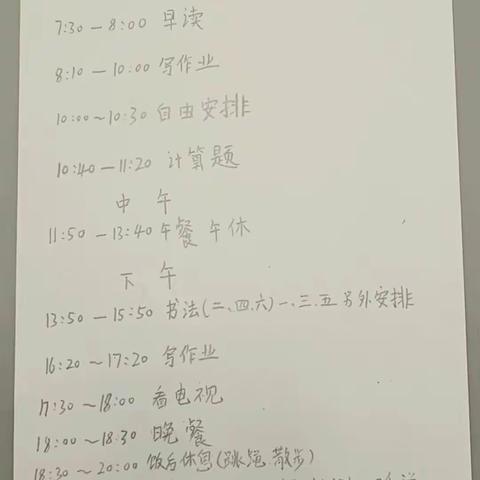 7:30—8:00 早读
8:10—10:00 写作业
10:00~10:30 自由安排
10:40—11:20 计算题
中 午
11:50—13:40 午餐 午休
下 午
13:50—15:50 书法(二、四、六)一、三、五另外安排
16:20~17:20 写作业
17:30~18:00 看电视
18:00~18:30 晚餐
18:30~20:00 饭后休息(跳绳、散步)